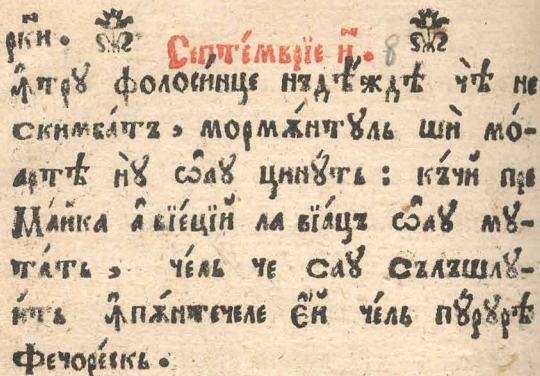 ркїй.
Септе́мврїе и҃. 8
ꙟтру фолоси́нце нъдѣ́ждѣ чѣ̀ не
скимба́тъ, мормѫ́нтꙋль шѝ мо́-
артѣ нꙋ̀ ѡ҆аꙋ цинꙋ́ть: къ́чй пре
Ма́йка а҆ вїе́цїй ла вїа́цъ ѡ҆аꙋ мꙋ-
та́ть, че́ль че саꙋ сълъшлꙋ-
и́ть ꙟ пѫ́нтечеле є҆́й че́ль пꙋ́рꙋрѣ
Фечоре́скь.